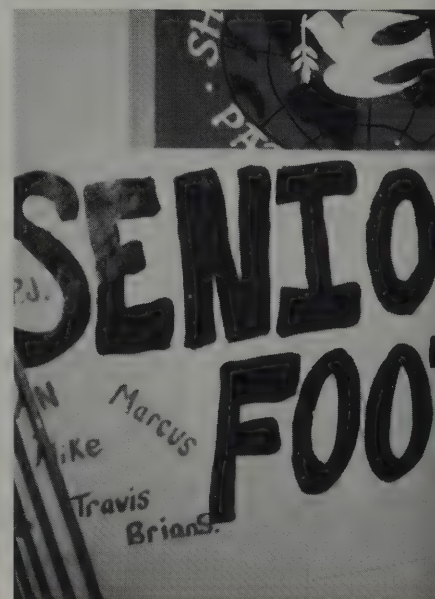 SH
· PA
SENIO
P.J.
FOO
AN
Marcus
Mike
Travis
Brian S.